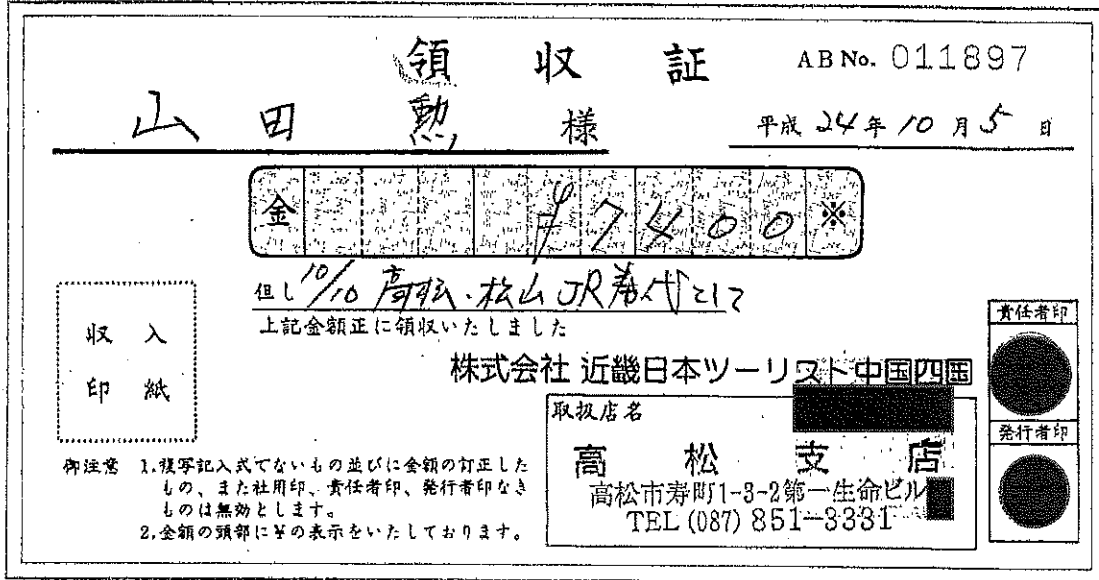 領収証 ABNo. 011897
山田 勲 様 平成24年10月5日
金 ¥7400※
但し 10/10 高松・松山JR券代として
上記金額正に領収いたしました
収入
印紙
株式会社 近畿日本ツーリスト中国四国
取扱店名
高松支店
高松市寿町1-3-2第一生命ビル
TEL (087) 851-3331
責任者印
発行者印
御注意 1.複写記入式でないもの並びに金額の訂正した
もの、また社用印、責任者印、発行者印なき
ものは無効とします。
2.金額の頭部に¥の表示をいたしております。